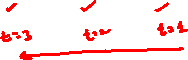 t=3 t=2 t=1